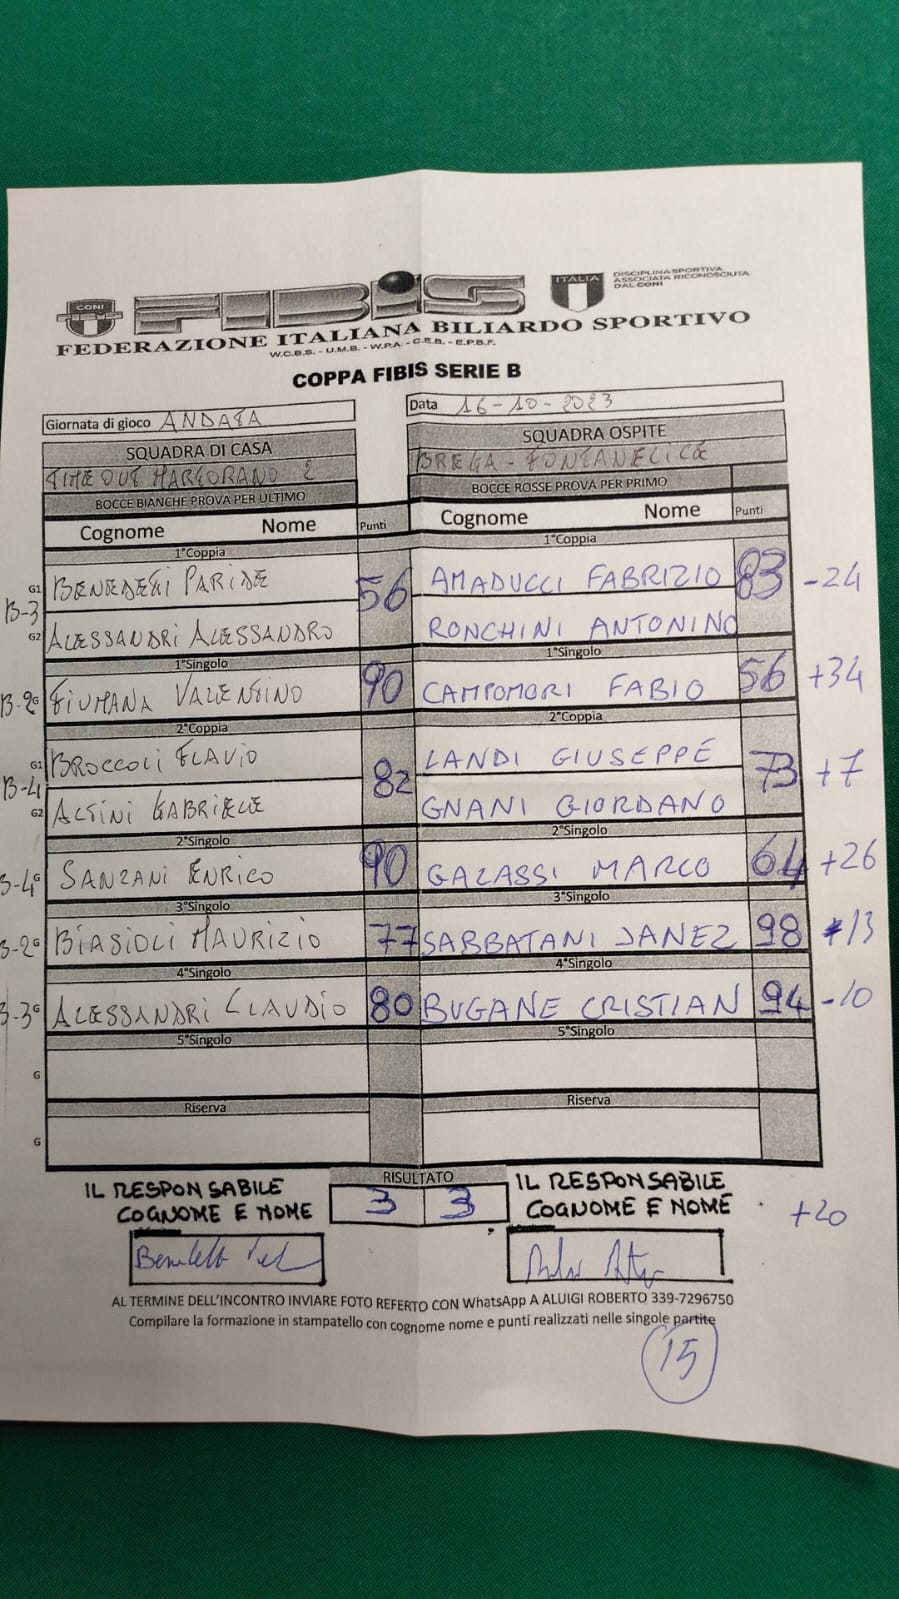 CONI
FIBIS
ITALIA
DISCIPLINA SPORTIVA
ASSOCIATA RICONOSCIUTA
DAL CONI
FEDERAZIONE ITALIANA BILIARDO SPORTIVO
W.C.B.S. - U.M.B. - W.P.A. - C.E.B. - E.P.B.F.
COPPA FIBIS SERIE B
Giornata di gioco ANDATA
Data 16-10-2023
SQUADRA DI CASA
SQUADRA OSPITE
TIME OUT MARTORANO 2
BREGA - FONTANELICE
BOCCE BIANCHE PROVA PER ULTIMO
BOCCE ROSSE PROVA PER PRIMO
Cognome Nome Punti
Cognome Nome Punti
1°Coppia
1°Coppia
G1 BENEDETTI PARIDE 56 AMADUCCI FABRIZIO 83 -24
B-3
G2 ALESSANDRI ALESSANDRO RONCHINI ANTONINO
1°Singolo
1°Singolo
B-2 G FIUMANA VALENTINO 90 CAMPOMORI FABIO 56 +34
2°Coppia
2°Coppia
G1 BROCCOLI FLAVIO 82 LANDI GIUSEPPE 73 +7
B-4
G2 ALTINI GABRIELE GNANI GIORDANO
2°Singolo
2°Singolo
B-4 G SANZANI ENRICO 90 GALASSI MARCO 64 +26
3°Singolo
3°Singolo
B-2 G BIASIOLI MAURIZIO 77 SABBATANI JANEZ 98 13
4°Singolo
4°Singolo
B-3 G ALESSANDRI CLAUDIO 80 BUGANE CRISTIAN 94 -10
5°Singolo
5°Singolo
G
Riserva
Riserva
G
RISULTATO
IL RESPONSABILE
COGNOME E NOME
3 3
IL RESPONSABILE
COGNOME E NOME
+20
AL TERMINE DELL'INCONTRO INVIARE FOTO REFERTO CON WhatsApp A ALUIGI ROBERTO 339-7296750
Compilare la formazione in stampatello con cognome nome e punti realizzati nelle singole partite
15